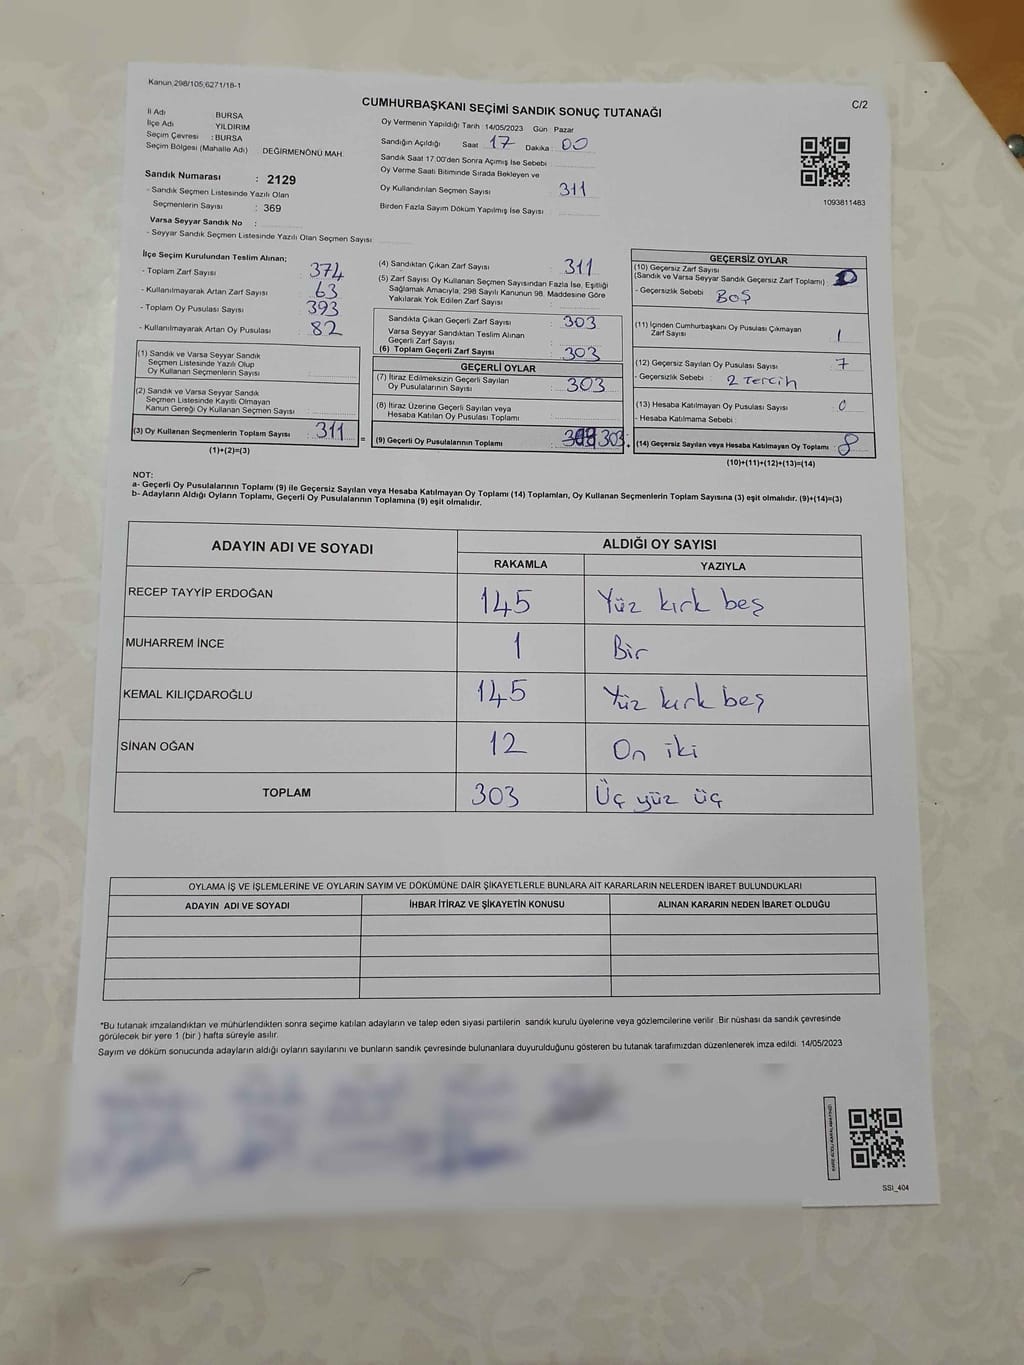 Kanun 298/105;6271/18-1
C/2
CUMHURBAŞKANI SEÇİMİ SANDIK SONUÇ TUTANAĞI
İl Adı BURSA
İlçe Adı YILDIRIM
Seçim Çevresi : BURSA
Seçim Bölgesi (Mahalle Adı) DEĞİRMENÖNÜ MAH.
Sandık Numarası : 2129
- Sandık Seçmen Listesinde Yazılı Olan
Seçmenlerin Sayısı : 369
Varsa Seyyar Sandık No :
- Seyyar Sandık Seçmen Listesinde Yazılı Olan Seçmen Sayısı:
Oy Vermenin Yapıldığı Tarih :14/05/2023 Gün : Pazar
Sandığın Açıldığı Saat 17 Dakika : 00
Sandık Saat 17.00'den Sonra Açımış İse Sebebi :
Oy Verme Saati Bitiminde Sırada Bekleyen ve
Oy Kullandırılan Seçmen Sayısı 311
Birden Fazla Sayım Döküm Yapılmış İse Sayısı :
1093811483
İlçe Seçim Kurulundan Teslim Alınan;
- Toplam Zarf Sayısı : 374
- Kullanılmayarak Artan Zarf Sayısı : 63
- Toplam Oy Pusulası Sayısı : 393
- Kullanılmayarak Artan Oy Pusulası : 82
(1) Sandık ve Varsa Seyyar Sandık
Seçmen Listesinde Yazılı Olup
Oy Kullanan Seçmenlerin Sayısı :
(2) Sandık ve Varsa Seyyar Sandık
Seçmen Listesinde Kayıtlı Olmayan
Kanun Gereği Oy Kullanan Seçmen Sayısı :
(3) Oy Kullanan Seçmenlerin Toplam Sayısı : 311 =
(1)+(2)=(3)
(4) Sandıktan Çıkan Zarf Sayısı : 311
(5) Zarf Sayısı Oy Kullanan Seçmen Sayısından Fazla İse, Eşitliği
Sağlamak Amacıyla; 298 Sayılı Kanunun 98. Maddesine Göre
Yakılarak Yok Edilen Zarf Sayısı :
Sandıkta Çıkan Geçerli Zarf Sayısı : 303
Varsa Seyyar Sandıktan Teslim Alınan
Geçerli Zarf Sayısı :
(6) Toplam Geçerli Zarf Sayısı : 303
GEÇERLİ OYLAR
(7) İtiraz Edilmeksizin Geçerli Sayılan
Oy Pusulalarının Sayısı : 303
(8) İtiraz Üzerine Geçerli Sayılan veya
Hesaba Katılan Oy Pusulası Toplamı :
(9) Geçerli Oy Pusulalarının Toplamı : 303
GEÇERSİZ OYLAR
(10) Geçersiz Zarf Sayısı
(Sandık ve Varsa Seyyar Sandık Geçersiz Zarf Toplamı) :
- Geçersizlik Sebebi : BOŞ
(11) İçinden Cumhurbaşkanı Oy Pusulası Çıkmayan
Zarf Sayısı : 1
(12) Geçersiz Sayılan Oy Pusulası Sayısı : 7
- Geçersizlik Sebebi : 2 Tercih
(13) Hesaba Katılmayan Oy Pusulası Sayısı : 0
- Hesaba Katılmama Sebebi :
(14) Geçersiz Sayılan veya Hesaba Katılmayan Oy Toplamı : 8
(10)+(11)+(12)+(13)=(14)
NOT:
a- Geçerli Oy Pusulalarının Toplamı (9) ile Geçersiz Sayılan veya Hesaba Katılmayan Oy Toplamı (14) Toplamları, Oy Kullanan Seçmenlerin Toplam Sayısına (3) eşit olmalıdır. (9)+(14)=(3)
b- Adayların Aldığı Oyların Toplamı, Geçerli Oy Pusulalarının Toplamına (9) eşit olmalıdır.
ADAYIN ADI VE SOYADI ALDIĞI OY SAYISI
RAKAMLA YAZIYLA
RECEP TAYYİP ERDOĞAN 145 Yüz kırk beş
MUHARREM İNCE 1 Bir
KEMAL KILIÇDAROĞLU 145 Yüz kırk beş
SİNAN OĞAN 12 On iki
TOPLAM 303 Üç yüz üç
OYLAMA İŞ VE İŞLEMLERİNE VE OYLARIN SAYIM VE DÖKÜMÜNE DAİR ŞİKAYETLERLE BUNLARA AİT KARARLARIN NELERDEN İBARET BULUNDUKLARI
ADAYIN ADI VE SOYADI İHBAR İTİRAZ VE ŞİKAYETİN KONUSU ALINAN KARARIN NEDEN İBARET OLDUĞU
*Bu tutanak imzalandıktan ve mühürlendikten sonra seçime katılan adayların ve talep eden siyasi partilerin sandık kurulu üyelerine veya gözlemcilerine verilir. Bir nüshası da sandık çevresinde
görülecek bir yere 1 (bir ) hafta süreyle asılır.
Sayım ve döküm sonucunda adayların aldığı oyların sayılarını ve bunların sandık çevresinde bulunanlara duyurulduğunu gösteren bu tutanak tarafımızdan düzenlenerek imza edildi. 14/05/2023
SSI_404